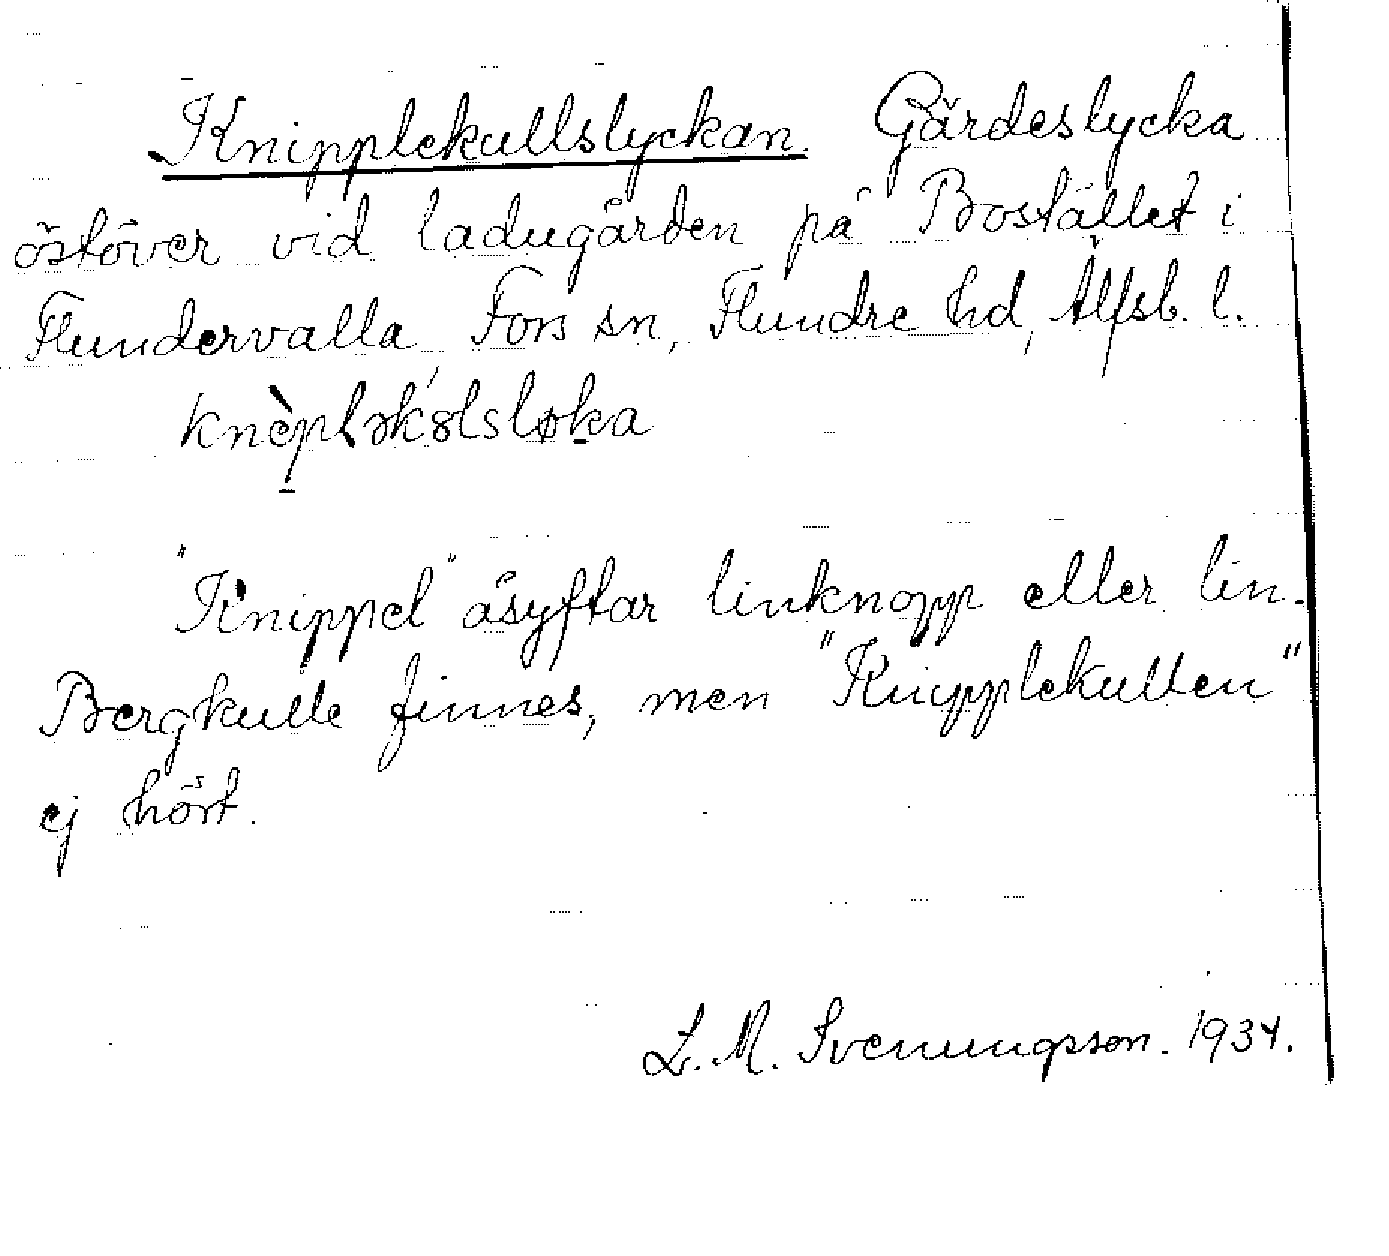 Knipplekullslyckan. Gärdeslycka
östöver vid ladugården på Bostället i
Flundervalla, Fors sn, Flundre hd, Älfsb. l.
knèpləkəlsløka
"Knippel" åsyftar linknopp eller lin.
Bergkulle finnes, men "Knipplekullen"
ej hört.
L. M. Svenungsson. 1934.